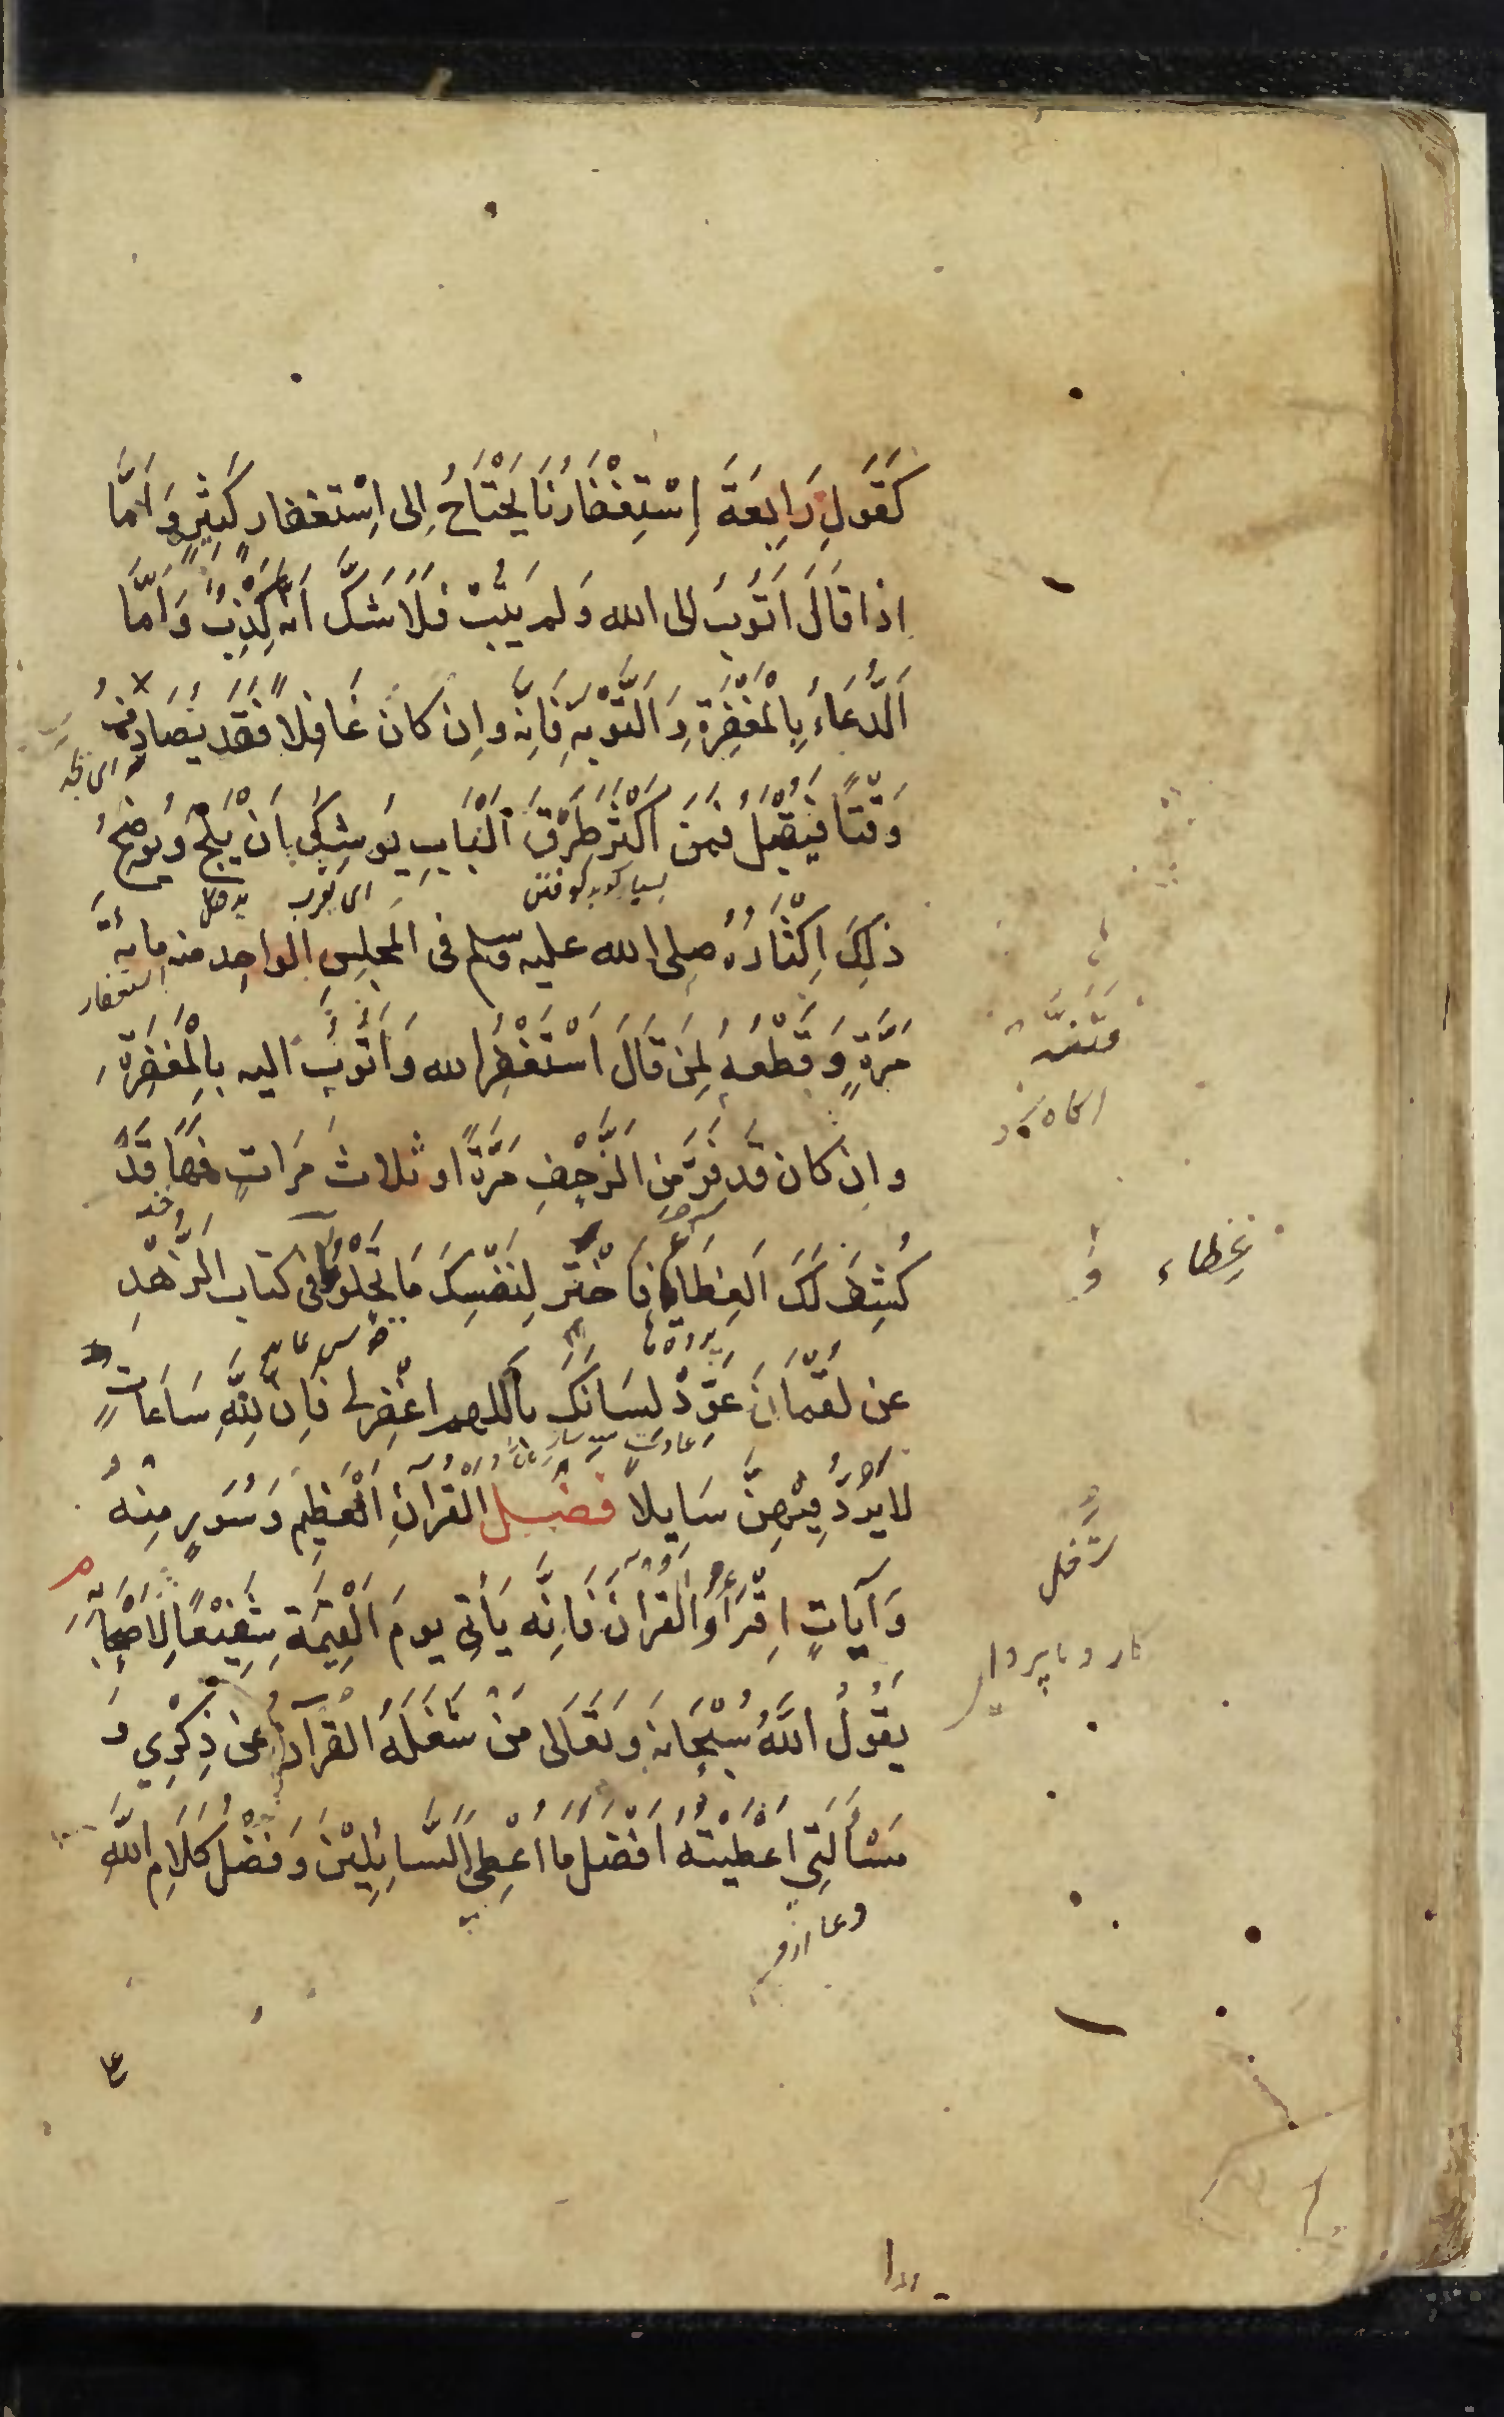 كَقَولِ رَابِعَةَ اِسْتِغْفَارُنَا يَحْتَاجُ اِلى اِسْتِغفار كَثِيرٍ وَاَمَّا
اذا قَالَ اَتَوُبُ الى الله وَلم يَتُبْ فَلَا شَكَّ اَنَّه كَذِبٌ وَاَمَّا
اَلدُّعَاءُ بِالْمَغْفِرَةِ وَالتَّوْبَةِ فَاِنَّه وَاِن كانَ غَافِلًا فَقَد يُصَادِفُ
وَقْتًا فَيُقْبَلُ فَمَنَ اَكْثَرَ طَرْقَ اَلْبَابِ يُوشِكُ اَنْ يَلِجَ وَيُوضِحُ
بسیار کوبد کوفتن
ای یقرب
ذلِكَ اِكْثَارُهُ صلى الله عليه وسلم فى المَجلِسِ الواحِد منه مِايةَ
استغفار
مَرَّةٍ وَقَطْعُهُ لِمَن قَالَ اَسْتَغْفِرُ الله وَاَتُوبُ اليه بِالْمَغْفِرَةِ
وان كان قَد فَرَّ مِنَ الزَّحْفِ مَرَّةً او ثلاثَ مَرَاتٍ فَهَا قَدْ
كُشِفَ لَكَ اَلغِطَاء فَاخْتَر لِنَفْسِكَ مَا يَحْلُو وَفى كتاب الزُّهْدِ
عن لقمَانَ عَوِّدْ لِسَانَكَ بِاللهم اغْفِر لى فَاِنَّ لِلَّهِ سَاعَاتٍ
لَا يَرُدُّ فِيْهِنَّ سَايِلًا فضل الْقُرآنِ الْعَظِيمِ وَسُوَرٍ مِنْهُ
وَآيَاتٍ اِقْرَاُوا القرآنَ فَاِنَّه يَأتِى يومَ الْقِيمَةِ شَفِيْعًا لِاَصْحَابِه
يَقُولُ اللهُ سُبْحَانَه وَتَعَالى مَنْ شَغَلَهُ القرآنُ عن ذِكْرِي وَ
مَسْأَلَتِي اَعْطَيْتُهُ اَفْضَلَ مَا اُعْطِى السَّايِلِيْنَ وَفَضْلُ كَلَامِ اللهِ
غِطاء